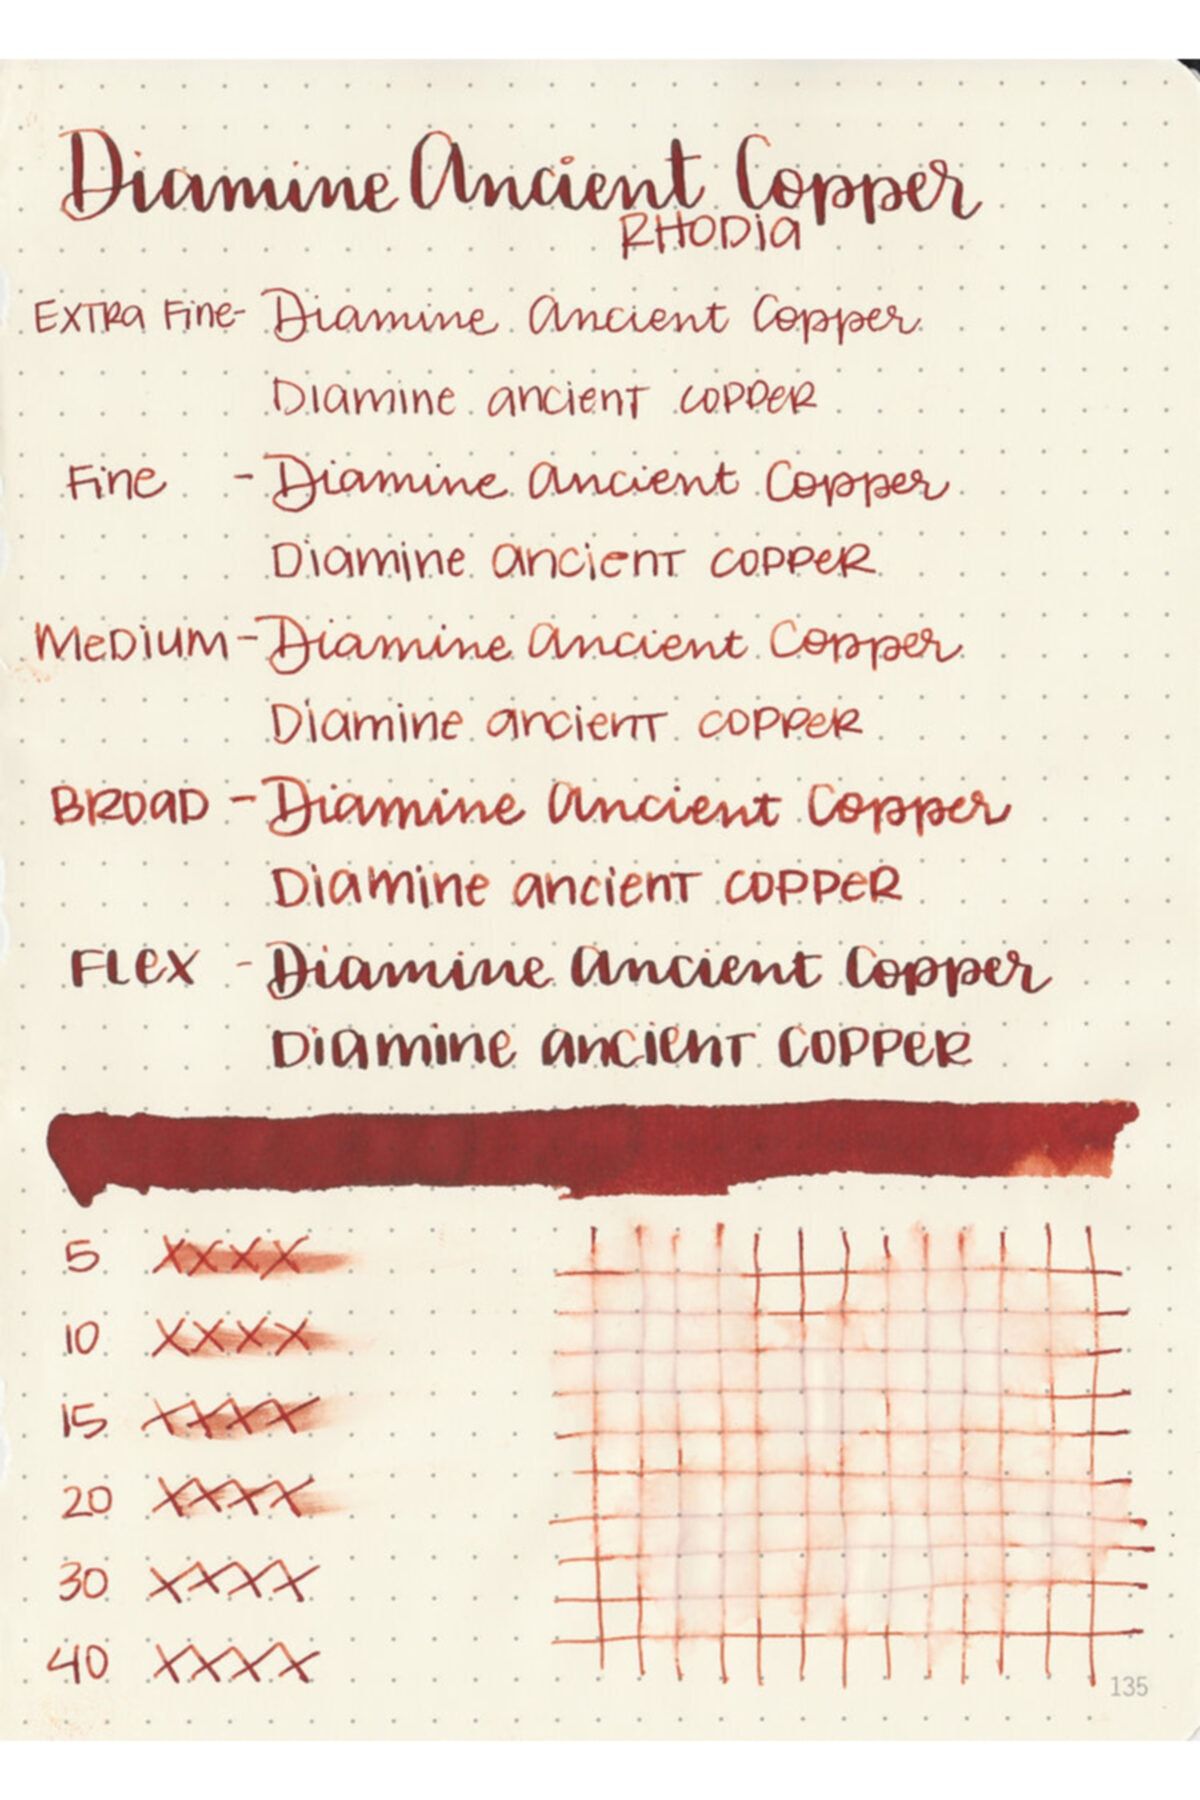 Diamine Ancient Copper
RHODIA
EXTRA Fine- Diamine Ancient Copper
Diamine ancient COPPER
Fine - Diamine Ancient Copper
Diamine ancient COPPER
MeDIUM - Diamine Ancient Copper
Diamine ancient COPPER
BROAD - Diamine Ancient Copper
Diamine ancient COPPER
FLeX - Diamine Ancient Copper
Diamine ancient COPPER
5 XXXX
10 XXXX
15 XXXX
20 XXXX
30 XXXX
40 XXXX
135